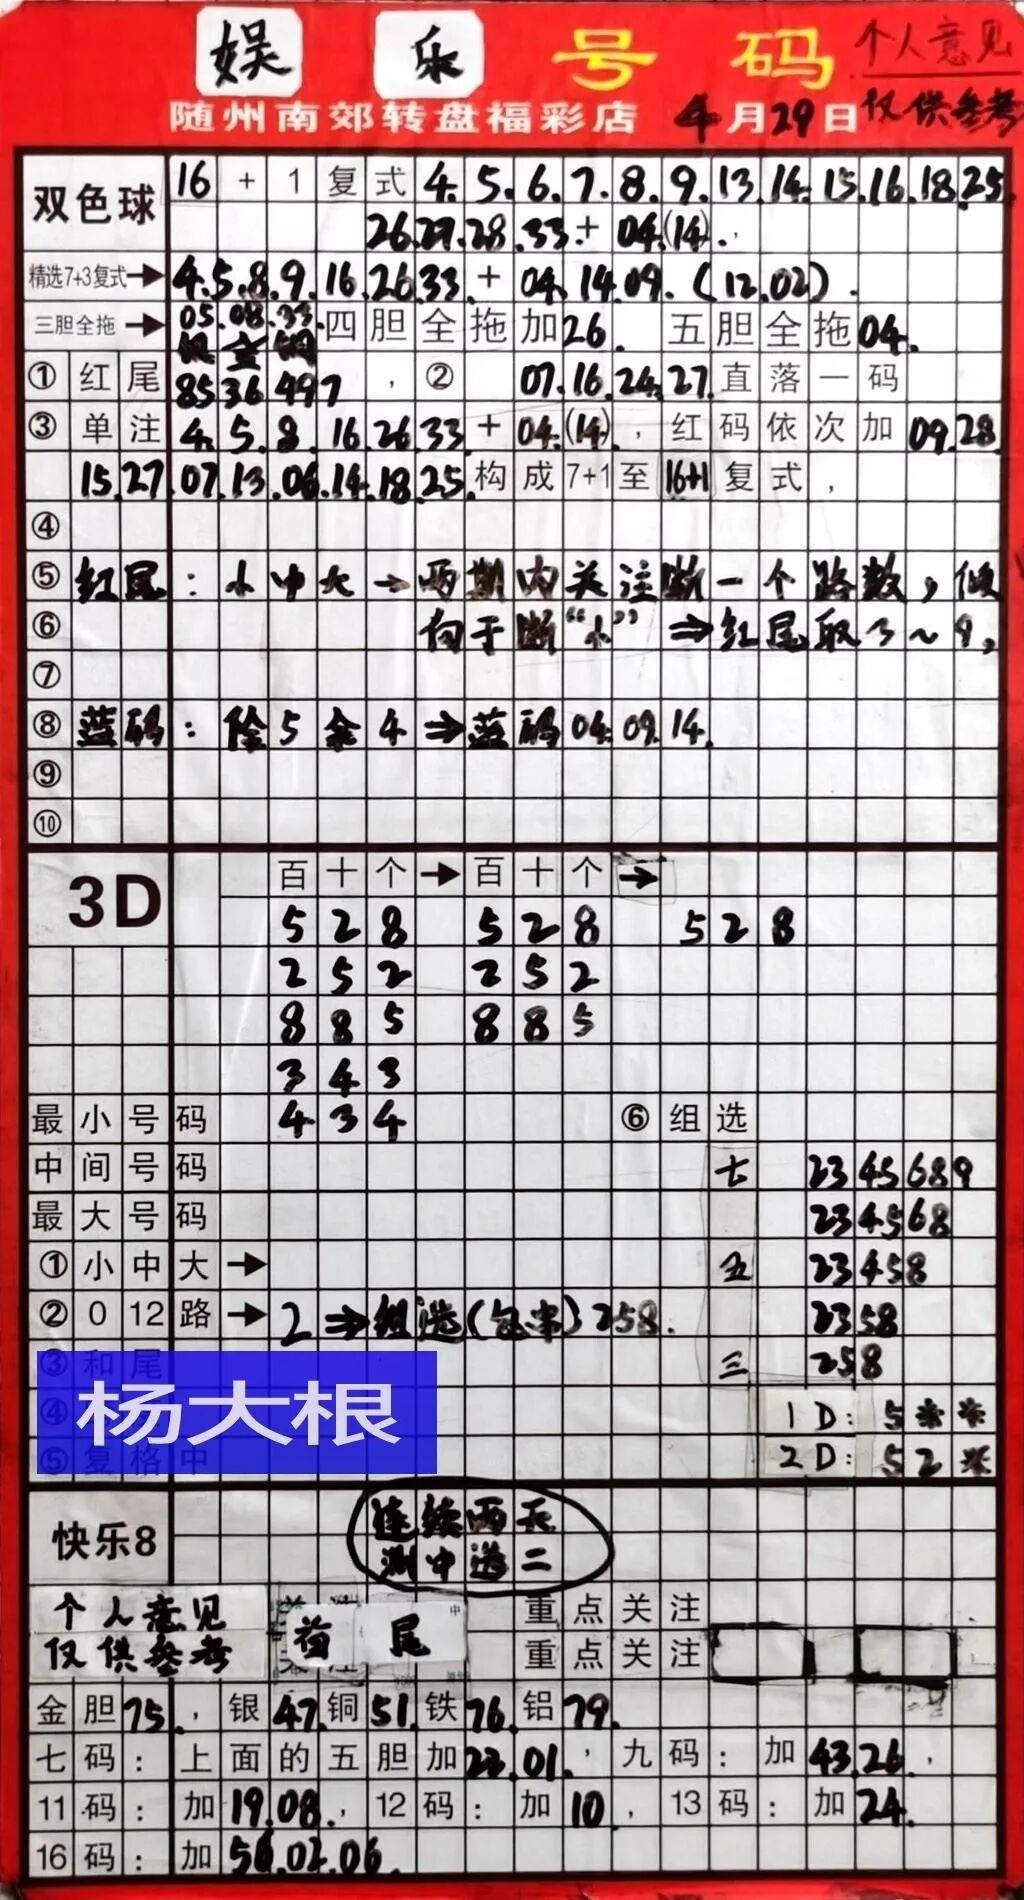 娱 乐 号 码 个人意见
随州南郊转盘福彩店 4月29日 仅供参考
双色球 16+1复式 4.5.6.7.8.9.13.14.15.16.18.25.
26.27.28.33.+04.(14).
精选7+3复式→ 4.5.8.9.16.26.33.+04.14.09.(12.02).
三胆全拖→ 05.08.33.四胆全拖加26. 五胆全拖04.
① 红尾 8536497，② 07.16.24.27.直落一码
③ 单注 4.5.8.16.26.33.+04.(14).，红码依次加09.28.
15.27.07.13.06.14.18.25.构成7+1至16+1复式，
④
⑤ 红尾：小中大→两期内关注断一个路数，倾
⑥ 向于断“小”⇒红尾取3~9,
⑦
⑧ 蓝码：除5余4⇒蓝码04.09.14.
⑨
⑩
3D 百十个→百十个→
528 528 528
252 252
885 885
343
最小号码 434 ⑥组选
中间号码 七 2345689
最大号码 234568
①小中大→ 五 23458
②012路→ 2⇒组选(包串)258. 2358
③和尾 三 258
杨大根
④ 1D: 5**
⑤复格中 2D: 52*
快乐8 连续两天
测中选二
个人意见 重点关注
仅供参考 首尾 重点关注
金胆75.，银47.铜51.铁76.铝79.
七码：上面的五胆加22.01.，九码：加43.26.，
11码：加19.08.，12码：加10，13码：加24.
16码：加56.02.06.